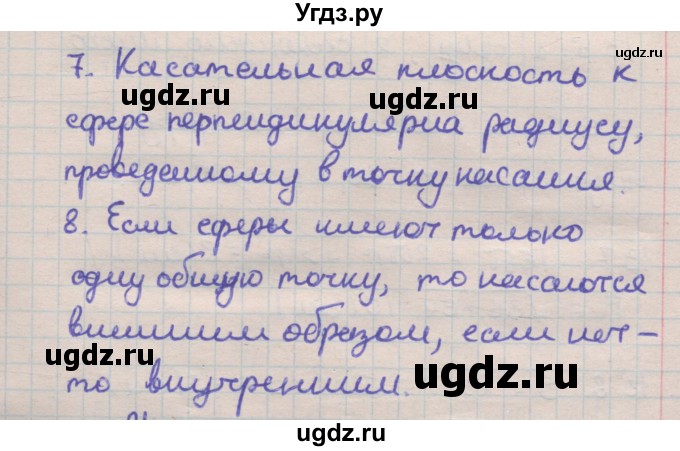 Угдз.ру
ugdz.ru
7. Касательная плоскость к
ugdz.ru
ugdz.ru
сфере перпендикулярна радиусу,
проведенному в точку касания.
ugdz.ru
8. Если сферы имеют только
одну общую точку, то касаются
внешним образом, если нет –
ugdz.ru
ugdz.ru
то внутренним.
ugdz.ru